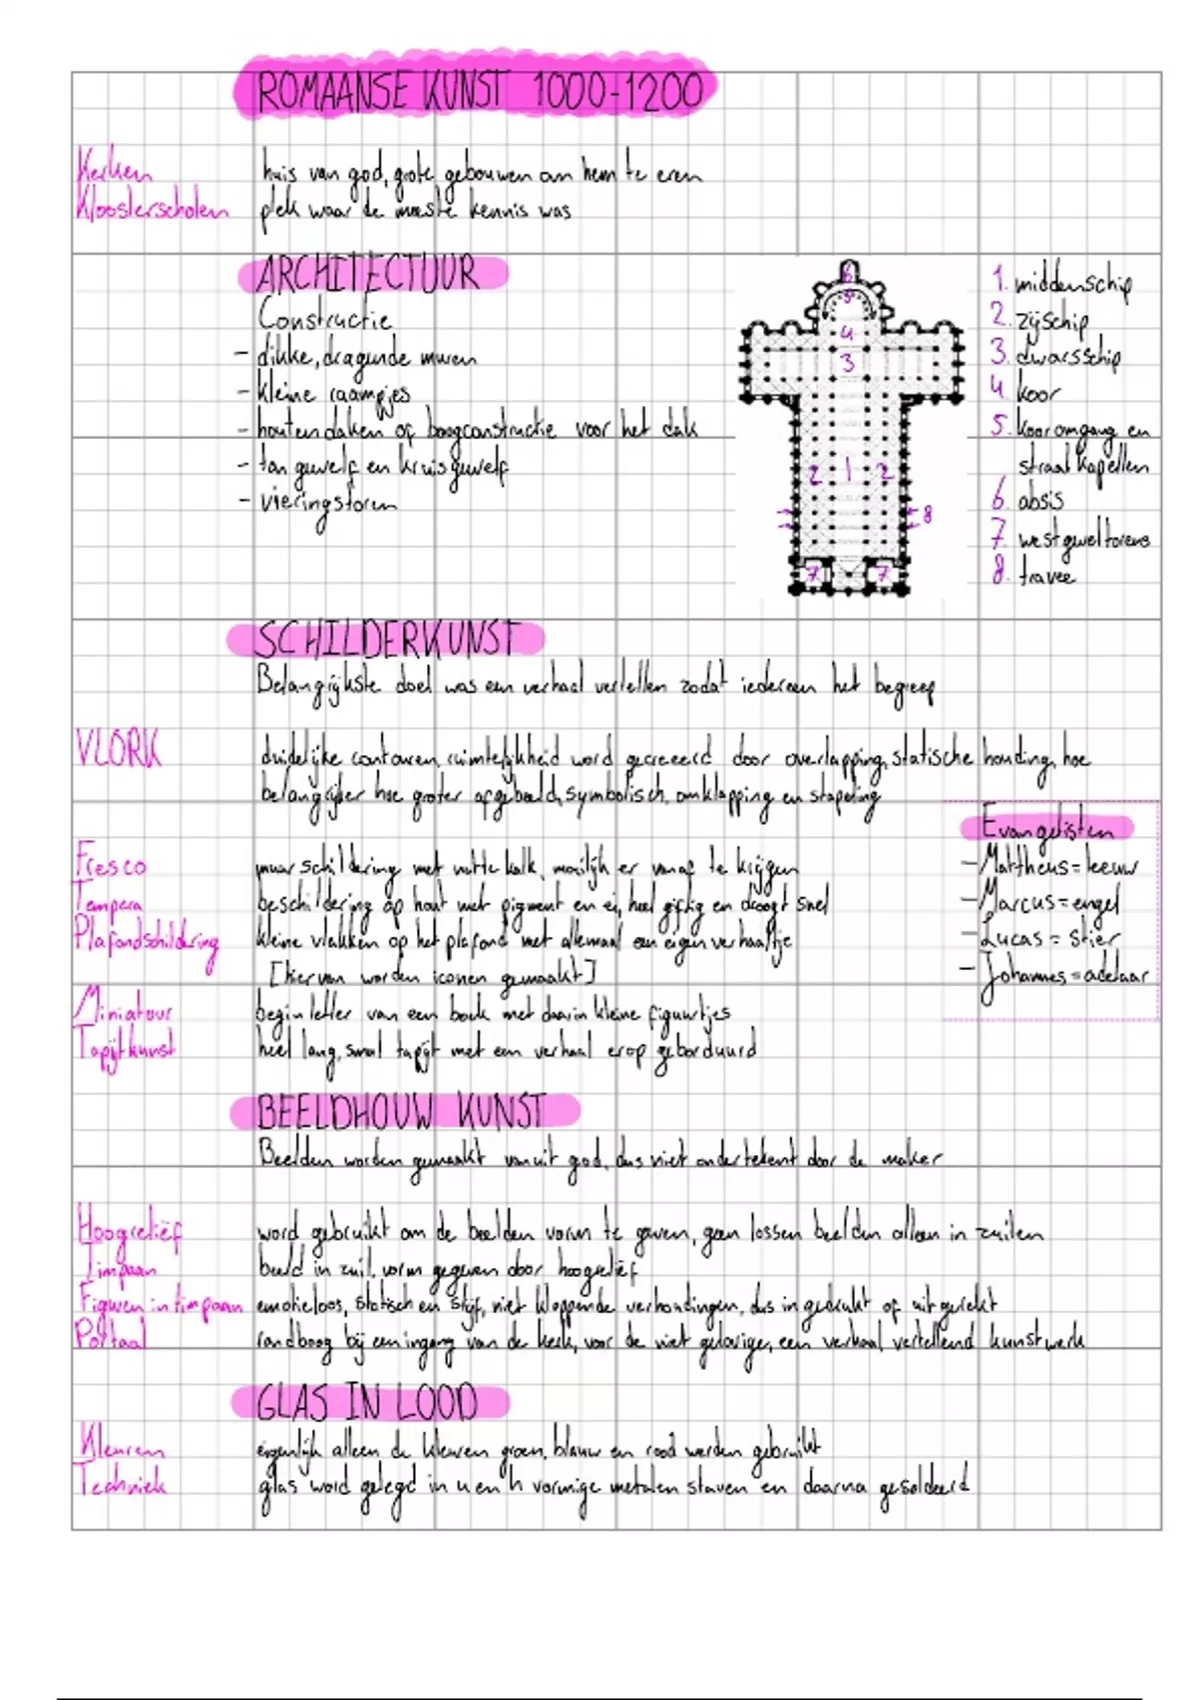 ROMAANSE KUNST 1000-1200
Kerken huis van god, grote gebouwen om hem te eren
Kloosterscholen plek waar de meeste kennis was
ARCHITECTUUR
Constructie
- dikke, dragende muren
- kleine raampjes
- houten daken of boogconstructie voor het dak
- ton gewelf en kruisgewelf
- vieringstoren
6
5
4
3
2 1 2
8
7 7
1. middenschip
2. zijschip
3. dwarsschip
4. koor
5. kooromgang en
straalkapellen
6. absis
7. westgeveltorens
8. travee
SCHILDERKUNST
Belangrijkste doel was een verhaal vertellen zodat iedereen het begreep
VLORK duidelijke contouren, ruimtelijkheid word gecreeerd door overlapping, statische houding, hoe
belangrijker hoe groter afgebeeld, symbolisch, omklapping en stapeling
Evangelisten
- Mattheus = leeuw
- Marcus = engel
- Lucas = stier
- Johannes = adelaar
Fresco muurschildering met natte kalk, moeilijk er vanaf te krijgen
Tempera beschildering op hout met pigment en ei, heel giftig en droogt snel
Plafondschildering kleine vlakken op het plafond met allemaal een eigen verhaaltje
[hiervan worden iconen gemaakt]
Miniatuur begin letter van een boek met daarin kleine figuurtjes
Tapijtkunst heel lang, smal tapijt met een verhaal erop geborduurd
BEELDHOUW KUNST
Beelden worden gemaakt vanuit god, dus niet ondertekent door de maker
Hoogreliëf word gebruikt om de beelden vorm te geven, geen lossen beelden alleen in zuilen
Timpaan beeld in zuil, vorm gegeven door hoogreliëf
Figuren in timpaan emotieloos, statisch en stijf, niet kloppende verhoudingen, dus ingedrukt of uitgerekt
Portaal rondboog bij een ingang van de kerk, voor de niet gelovigen, een verhaal vertellend kunstwerk
GLAS IN LOOD
Kleuren eigenlijk alleen de kleuren groen, blauw en rood werden gebruikt
Techniek glas word gelegd in u en h vormige metalen staven en daarna gesoldeerd